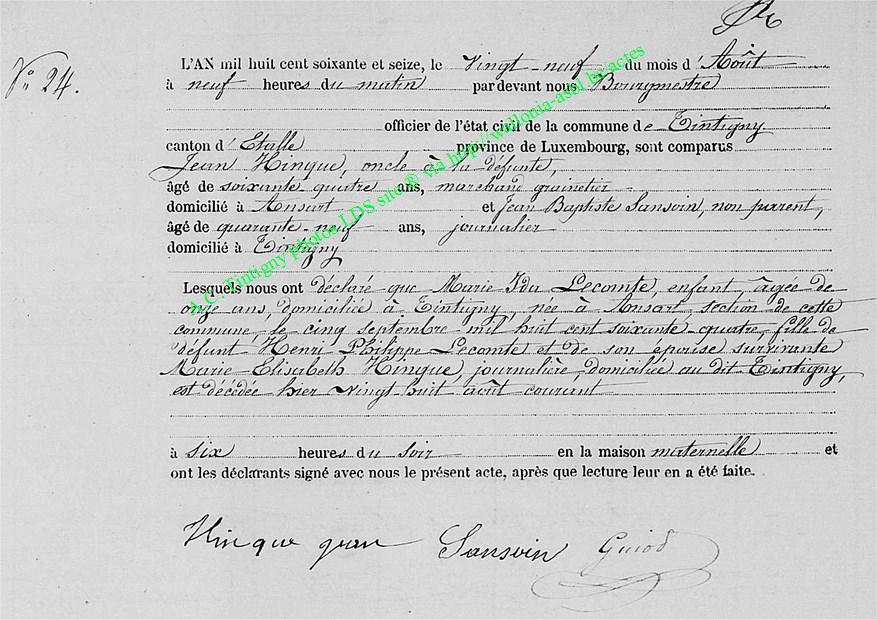 N° 24.
L'AN mil huit cent soixante et seize, le Vingt-neuf du mois d'Août
à neuf heures du matin par devant nous Bourgmestre
officier de l'état civil de la commune de Tintigny
canton d'Etalle province de Luxembourg, sont comparus
Jean Hinque, oncle à la défunte,
âgé de soixante quatre ans, marchand grainetier
domicilié à Ansart et Jean Baptiste Sansoin, non parent,
âgé de quarante-neuf ans, journalier
domicilié à Tintigny
Lesquels nous ont déclaré que Marie Ida Lecomte, enfant, âgée de
onze ans, domiciliée à Tintigny, née à Ansart, section de cette
commune, le cinq septembre mil huit cent soixante quatre, fille de
défunt Henri Philippe Lecomte et de son épouse survivante
Marie-Elisabeth Hinque, journalière, domiciliée au dit Tintigny,
est décédée hier vingt huit août courant
à six heures du soir en la maison maternelle et
ont les déclarants signé avec nous le présent acte, après que lecture leur en a été faite.
Hinque jean Sansoin Guiod
A.C. Tintigny photos LDS site® via http://wallonia-asbl.be/actes